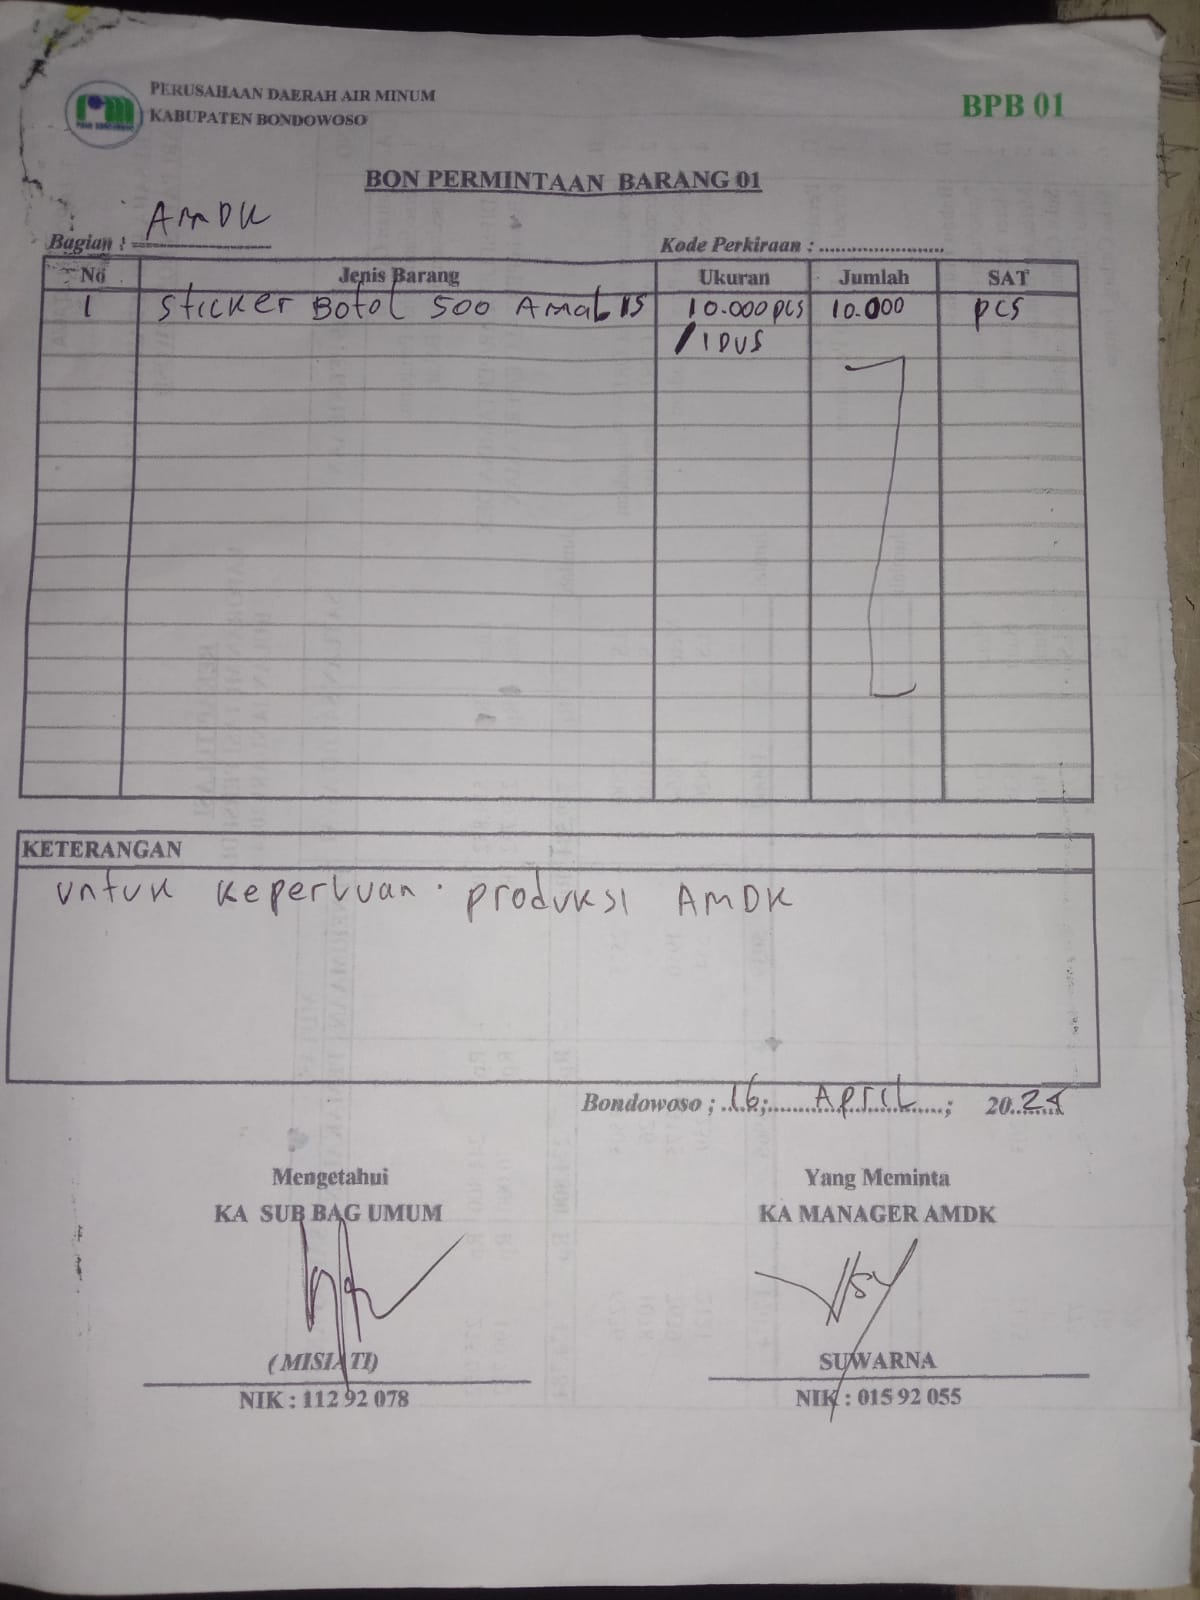 PERUSAHAAN DAERAH AIR MINUM
KABUPATEN BONDOWOSO
BPB 01
BON PERMINTAAN BARANG 01
Bagian : AMDK
Kode Perkiraan : ........................
No Jenis Barang Ukuran Jumlah SAT
1 Sticker Botol 500 Amalis 10.000 pcs 10.000 pcs
/ 1 DUS
KETERANGAN
untuk keperluan produksi AMDK
Bondowoso ; 16; April ; 2024
Mengetahui
KA SUB BAG UMUM
(MISIATI)
NIK : 112 92 078
Yang Meminta
KA MANAGER AMDK
SUWARNA
NIK : 015 92 055